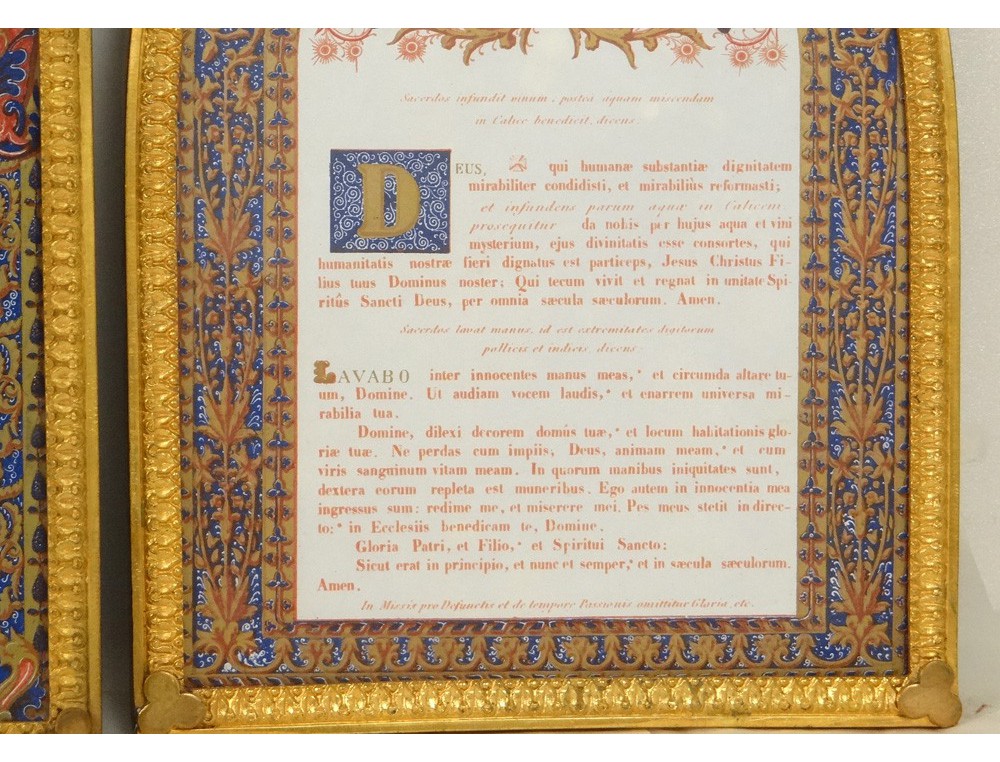 Sacerdos infundit vinum, postea aquam miscendam
in Calice benedicit, dicens.
DEUS, qui humanæ substantiæ dignitatem
mirabiliter condidisti, et mirabiliùs reformasti;
et infundens parum aquæ in Calicem
prosequitur da nobis per hujus aqua et vini
mysterium, ejus divinitatis esse consortes, qui
humanitatis nostræ fieri dignatus est particeps, Jesus Christus Fi-
lius tuus Dominus noster; Qui tecum vivit et regnat in unitate Spi-
ritûs Sancti Deus, per omnia sæcula sæculorum. Amen.
Sacerdos lavat manus, id est extremitates digitorum
pollicis et indicis, dicens:
LAVABO inter innocentes manus meas,* et circumda altare tu-
um, Domine. Ut audiam vocem laudis,* et enarrem universa mi-
rabilia tua.
Domine, dilexi decorem domûs tuæ,* et locum habitationis glo-
riæ tuæ. Ne perdas cum impiis, Deus, animam meam,* et cum
viris sanguinum vitam meam. In quorum manibus iniquitates sunt,
dextera eorum repleta est muneribus. Ego autem in innocentia mea
ingressus sum: redime me, et miserere mei. Pes meus stetit in direc-
to;* in Ecclesiis benedicam te, Domine.
Gloria Patri, et Filio,* et Spiritui Sancto;
Sicut erat in principio, et nunc et semper,* et in sæcula sæculorum.
Amen.
In Missis pro Defunctis et de tempore Passionis omittitur Gloria, etc.